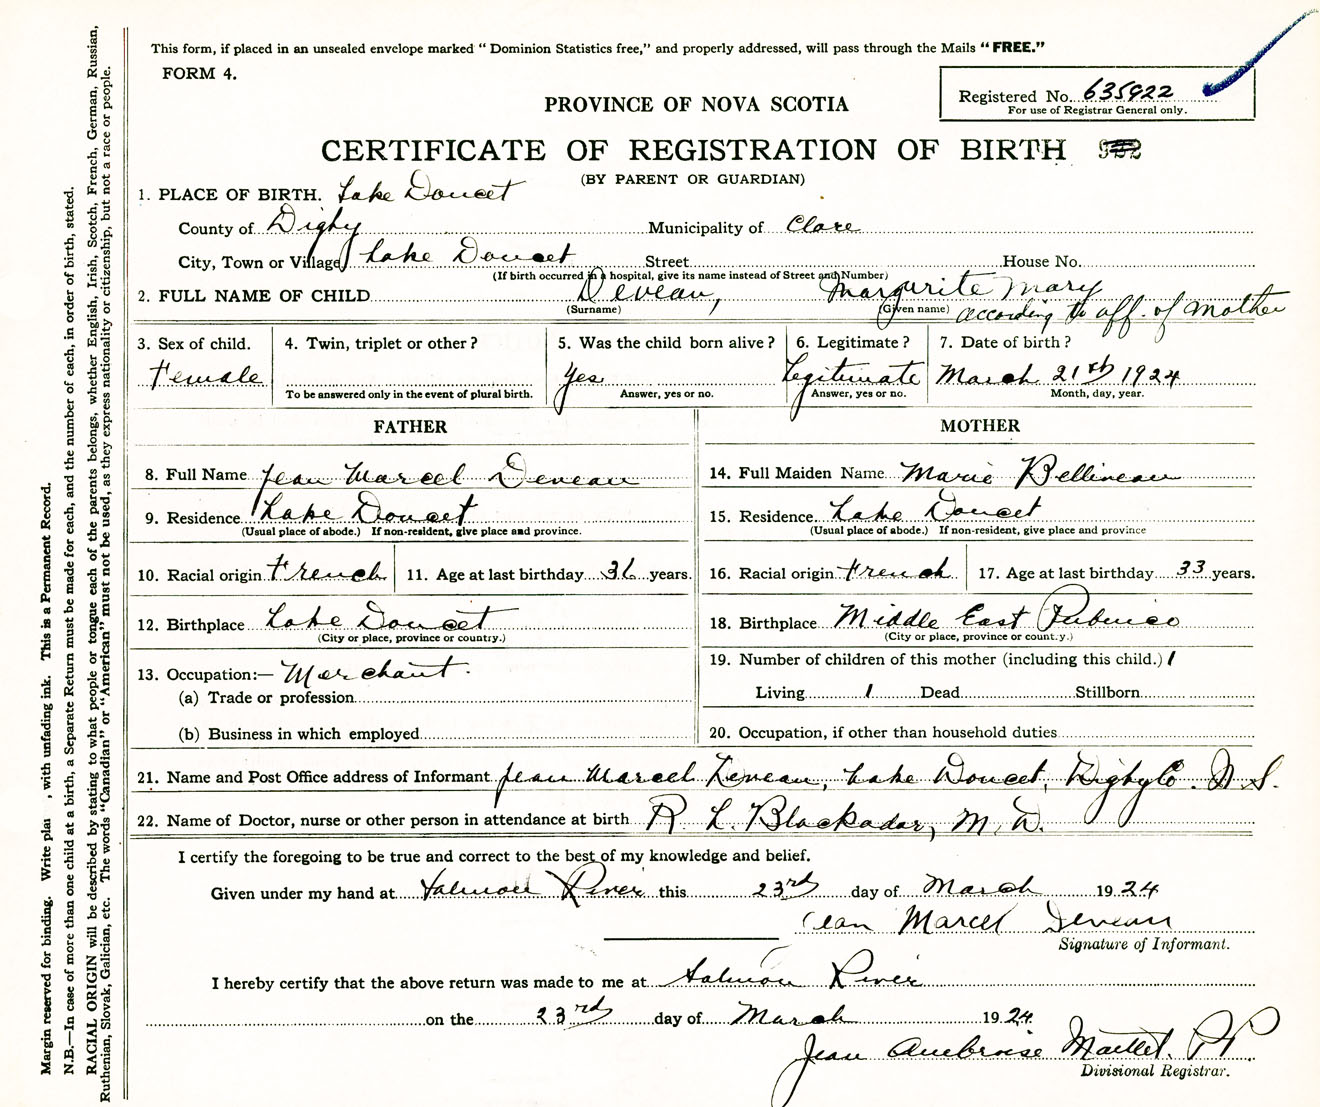 This form, if placed in an unsealed envelope marked “ Dominion Statistics free,” and properly addressed, will pass through the Mails “ FREE.”
FORM 4.
Registered No. 635922
For use of Registrar General only.
PROVINCE OF NOVA SCOTIA
CERTIFICATE OF REGISTRATION OF BIRTH
(BY PARENT OR GUARDIAN)
1. PLACE OF BIRTH. Lake Doucet
County of Digby Municipality of Clare
City, Town or Village Lake Doucet Street House No.
(If birth occurred in a hospital, give its name instead of Street and Number)
2. FULL NAME OF CHILD Deveau, Margurite Mary
(Surname) (Given name) according to aff. of Mother
3. Sex of child. 4. Twin, triplet or other ? 5. Was the child born alive ? 6. Legitimate ? 7. Date of birth ?
Female Yes Legitimate March 21st 1924
To be answered only in the event of plural birth. Answer, yes or no. Answer, yes or no. Month, day, year.
FATHER MOTHER
8. Full Name Jean Marcel Deveau 14. Full Maiden Name Marie Belliveau
9. Residence Lake Doucet 15. Residence Lake Doucet
(Usual place of abode.) If non-resident, give place and province. (Usual place of abode.) If non-resident, give place and province
10. Racial origin French 11. Age at last birthday years. 16. Racial origin French 17. Age at last birthday 33 years.
12. Birthplace Lake Doucet 18. Birthplace Middle East Pubnico
(City or place, province or country.) (City or place, province or count.y.)
13. Occupation:— Merchant. 19. Number of children of this mother (including this child.) 1
(a) Trade or profession Living 1 Dead Stillborn
(b) Business in which employed 20. Occupation, if other than household duties
21. Name and Post Office address of Informant Jean Marcel Deveau, Lake Doucet, Digby Co. N.S.
22. Name of Doctor, nurse or other person in attendance at birth R. L. Blackadar, M.D.
I certify the foregoing to be true and correct to the best of my knowledge and belief.
Given under my hand at Salmon River this 23rd day of March 1924
Jean Marcel Deveau
Signature of Informant.
I hereby certify that the above return was made to me at Salmon River
on the 23rd day of March 1924
Jean Ambroise Maillet. PP
Divisional Registrar.
Margin reserved for binding. Write plai , with unfading ink. This is a Permanent Record.
N.B.—In case of more than one child at a birth, a Separate Return must be made for each, and the number of each, in order of birth, stated.
RACIAL ORIGIN will be described by stating to what people or tongue each of the parents belongs, whether English, Irish, Scotch, French, German, Russian,
Ruthenian, Slovak, Galician, etc. The words “Canadian” or “American” must not be used, as they express nationality or citizenship, but not a race or people.